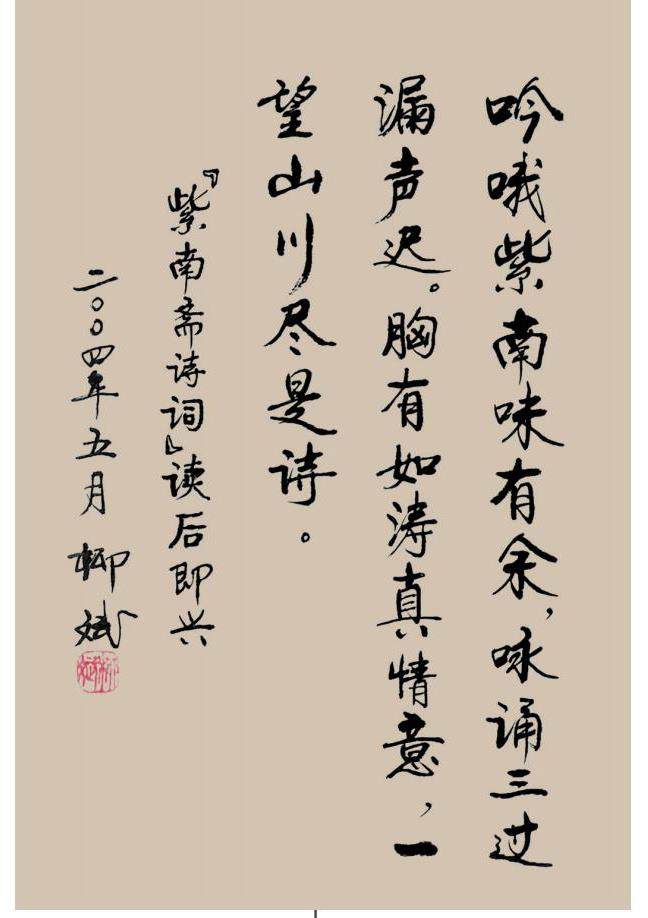 吟哦紫南味有余，咏诵三过
漏声迟。胸有如涛真情意，一
望山川尽是诗。
『紫南斋诗词』读后即兴
二〇〇四年五月 柳斌